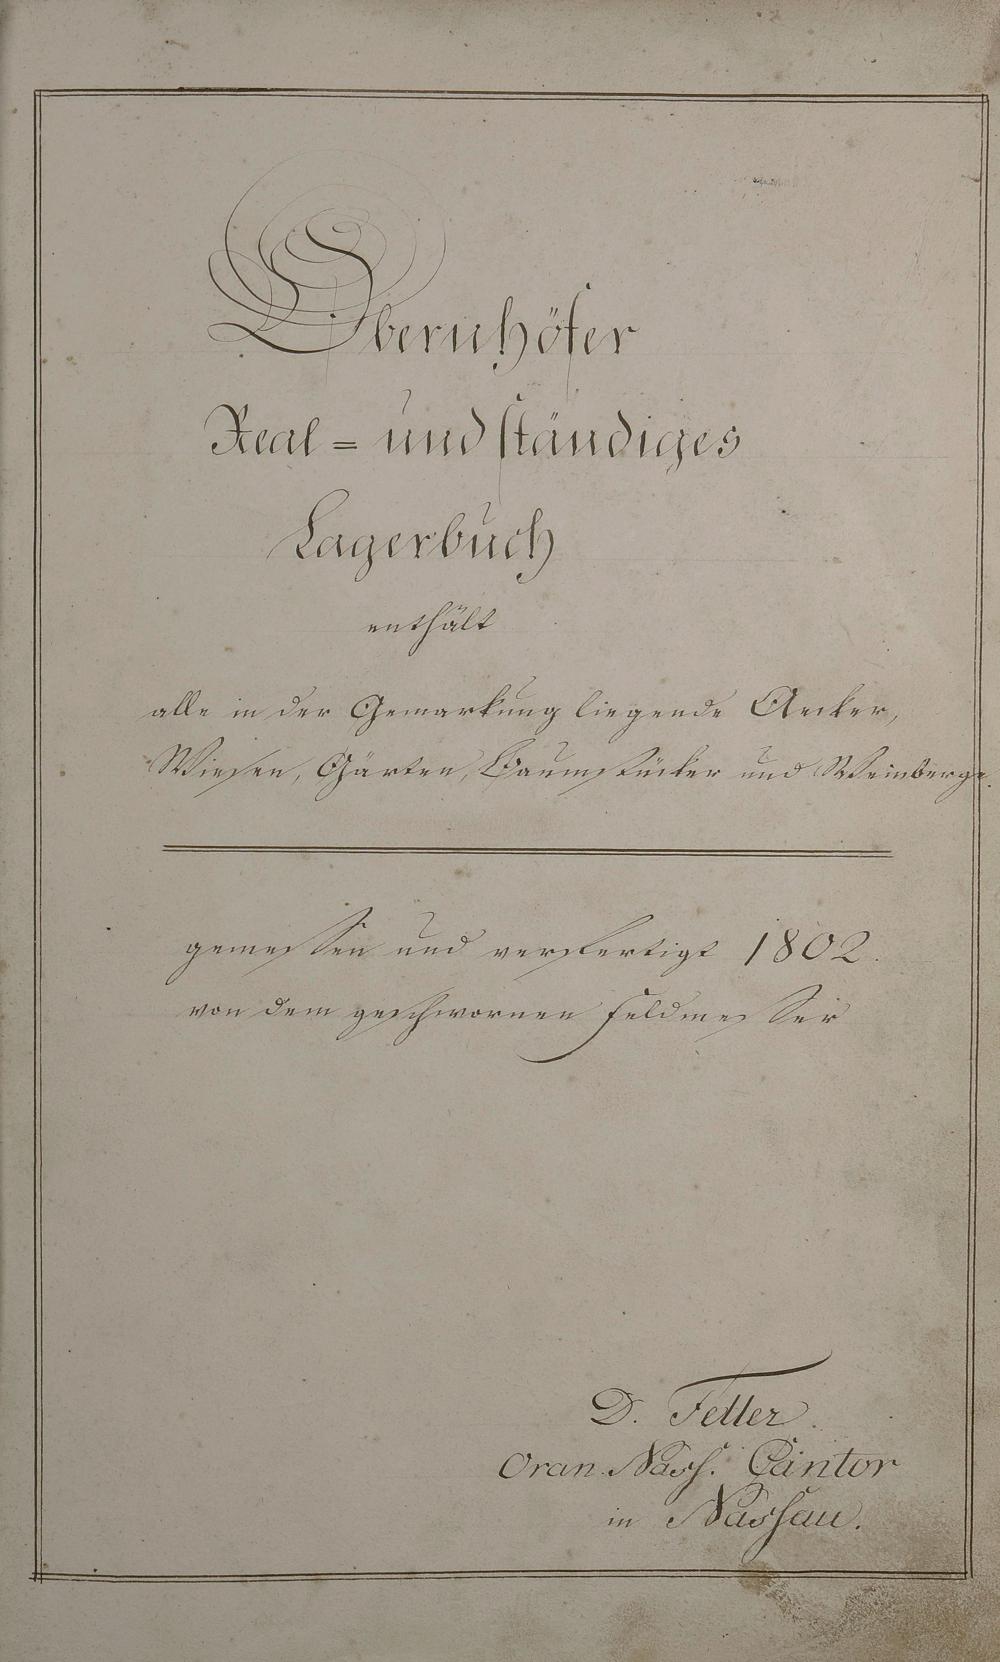 Obernhöfer
Real= und ständiges
Lagerbuch
enthält
alle in der Gemarkung liegende Aecker,
Wiesen, Gärten, Baumstücker und Weinberge.
gemessen und verfertigt 1802.
von dem geschwornen Feldmesser
D. Feller.
Oran. Nass. Cantor
in Nassau.